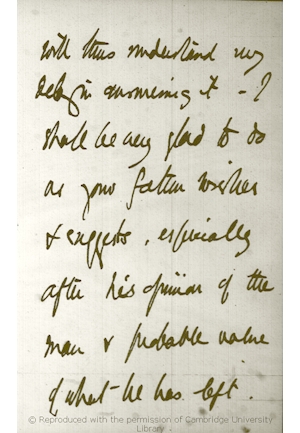 will thus understand my
delay in answering it - I
shall be very glad to do
as your father wishes
& suggests, especially
after his opinion of the
man & probable value
of what he has left.
© Reproduced with the permission of Cambridge University
Library